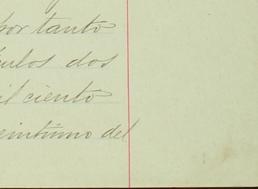 por tanto
ulos dos
il ciento
eintiuno del